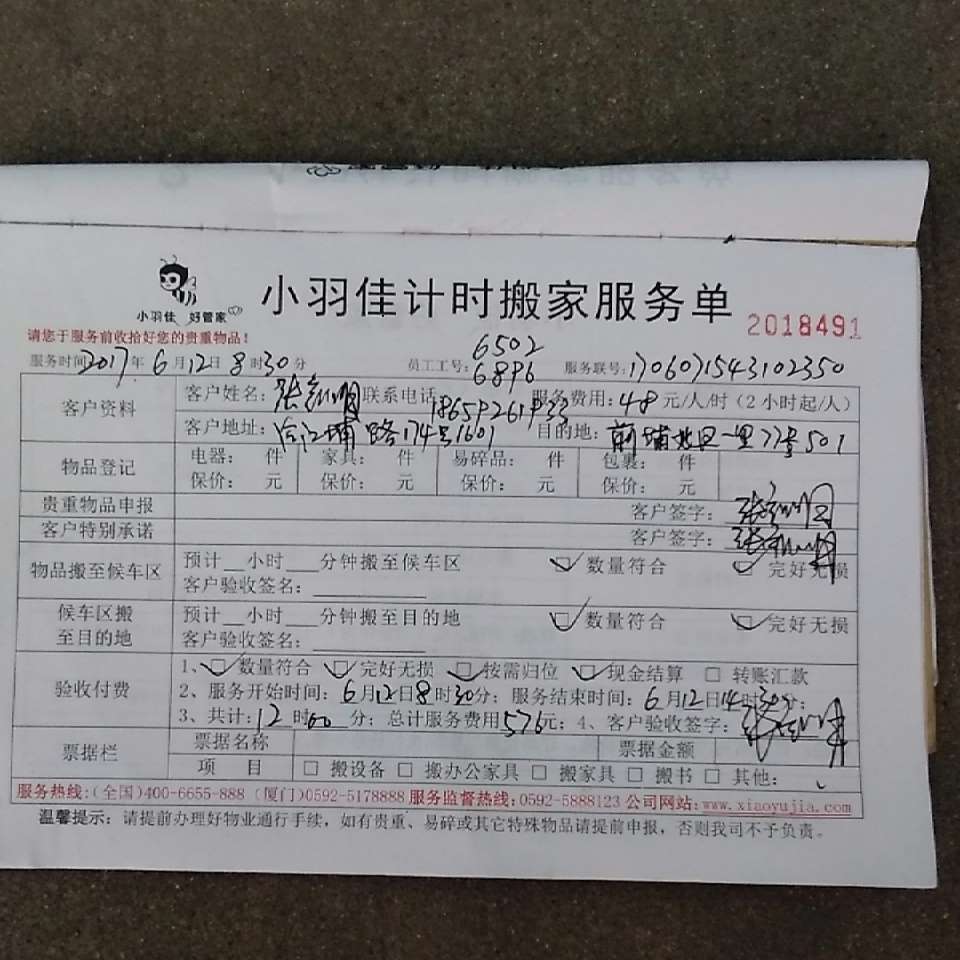 小羽佳 好管家
小羽佳计时搬家服务单
2018491
请您于服务前收拾好您的贵重物品!
服务时间2017年6月12日8时30分 员工工号:6502 6896 服务联号:1706071543102350
客户资料
客户姓名: 联系电话18659261933 服务费用:48元/人/时(2小时起/人)
客户地址: 路174号1601 目的地:前埔北区一里77号501
物品登记
电器: 件 家具: 件 易碎品: 件 包裹: 件
保价: 元 保价: 元 保价: 元 保价: 元
贵重物品申报 客户签字:
客户特别承诺 客户签字:
物品搬至候车区
预计__小时___分钟搬至候车区 数量符合 完好无损
客户验收签名:
候车区搬至目的地
预计__小时___分钟搬至目的地 数量符合 完好无损
客户验收签名:
验收付费
1、 数量符合 完好无损 按需归位 现金结算 转账汇款
2、服务开始时间:6月12日8时30分;服务结束时间:6月12日14时30分;
3、共计:12时00分;总计服务费用576元;4、客户验收签字:
票据栏
票据名称 票据金额
项 目 搬设备 搬办公家具 搬家具 搬书 其他:
服务热线:(全国)400-6655-888 (厦门)0592-5178888 服务监督热线:0592-5888123 公司网站:www.xiaoyujia.com
温馨提示:请提前办理好物业通行手续,如有贵重、易碎或其它特殊物品请提前申报,否则我司不予负责。